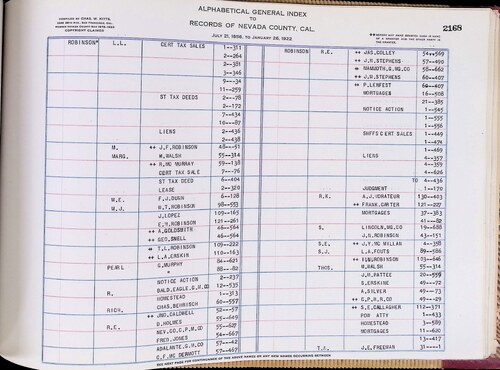 ALPHABETICAL GENERAL INDEX
TO
RECORDS OF NEVADA COUNTY, CAL.
JULY 21, 1856, TO JANUARY 28, 1922
2168
COMPILED BY CHAS. W. KITTS
COPYRIGHT CLAIMED
ROBINSON L.L. CERT TAX SALES 1--311
2--264
2--381
3--346
9---34
11--259
ST TAX DEEDS 2--78
2--172
7--434
10--87
LIENS 2--436
2--438
M. ++ J.F.ROBINSON 48--51
MARG. M.WALSH 55--314
++ R.MC MURRAY 59--138
CERT TAX SALE 7--76
ST TAX DEED 6--404
LEASE 2--320
M.E. F.J.DUNN 6--128
M.J. W.T.ROBINSON 98--553
J.LOPEZ 109--165
E.M.ROBINSON 121--261
++ A.GOLDSMITH 46--564
++ GEO.SNELL 46--564
++ T.L.ROBINSON 109--222
++ L.A.ERSKIN 110--163
PEARL G.MURPHY 84--621
" 88--82
NOTICE ACTION 2--237
R. BALD.EAGLE,G.M.CO 12--535
HOMESTEAD 1--313
RICH. CHAS.BEHRISCH 60--557
++ JNO.CALDWELL 52--371
R.E. D.HOLMES 55--649
NEV.CO,C,P,M,CO 55--627
FRED.JONES 54--667
ADALANTE,G.M.CO 57--42
C.F.MC DERMOTT 57--467
ROBINSON R.E. ++ JAS.COLLEY 54--569
++ J.H.STEPHENS 57--490
++ MAMMOTH,G,MG,CO 58--662
++ J.H.STEPHENS 60--407
++ P.LENFEST 60--407
MORTGAGES 16--508
21--385
NOTICE ACTION 1--545
1--555
1--556
SHFFS CERT SALES 1--449
1--474
1--469
LIENS 4--357
4--359
4--626
10 4--436
JUDGMENT 1--170
R.K. A.J.VORATEUR 130--403
++ FRANK.CARTER 121--227
MORTGAGES 37--383
41--82
S. LINCOLN,MG,CO 19--688
J.R.ROBINSON 43--151
S.E. ++ J.T.MC MILLAN 4--358
S.J. L.A.FOUTS 89--586
++ ROBINSON 103--646
THOS. M.WALSH 55--314
J.H.PATTEE 20--559
S.ERSKINE 49--72
A.SILVER 49--73
++ C,P,R,R,CO 49--29
++ S.E.GALLAGHER 112--57
POW ATTY 1--433
HOMESTEAD 3--589
MORTGAGES 11--420
13--417
T.J. J.E.FREEMAN 31---1